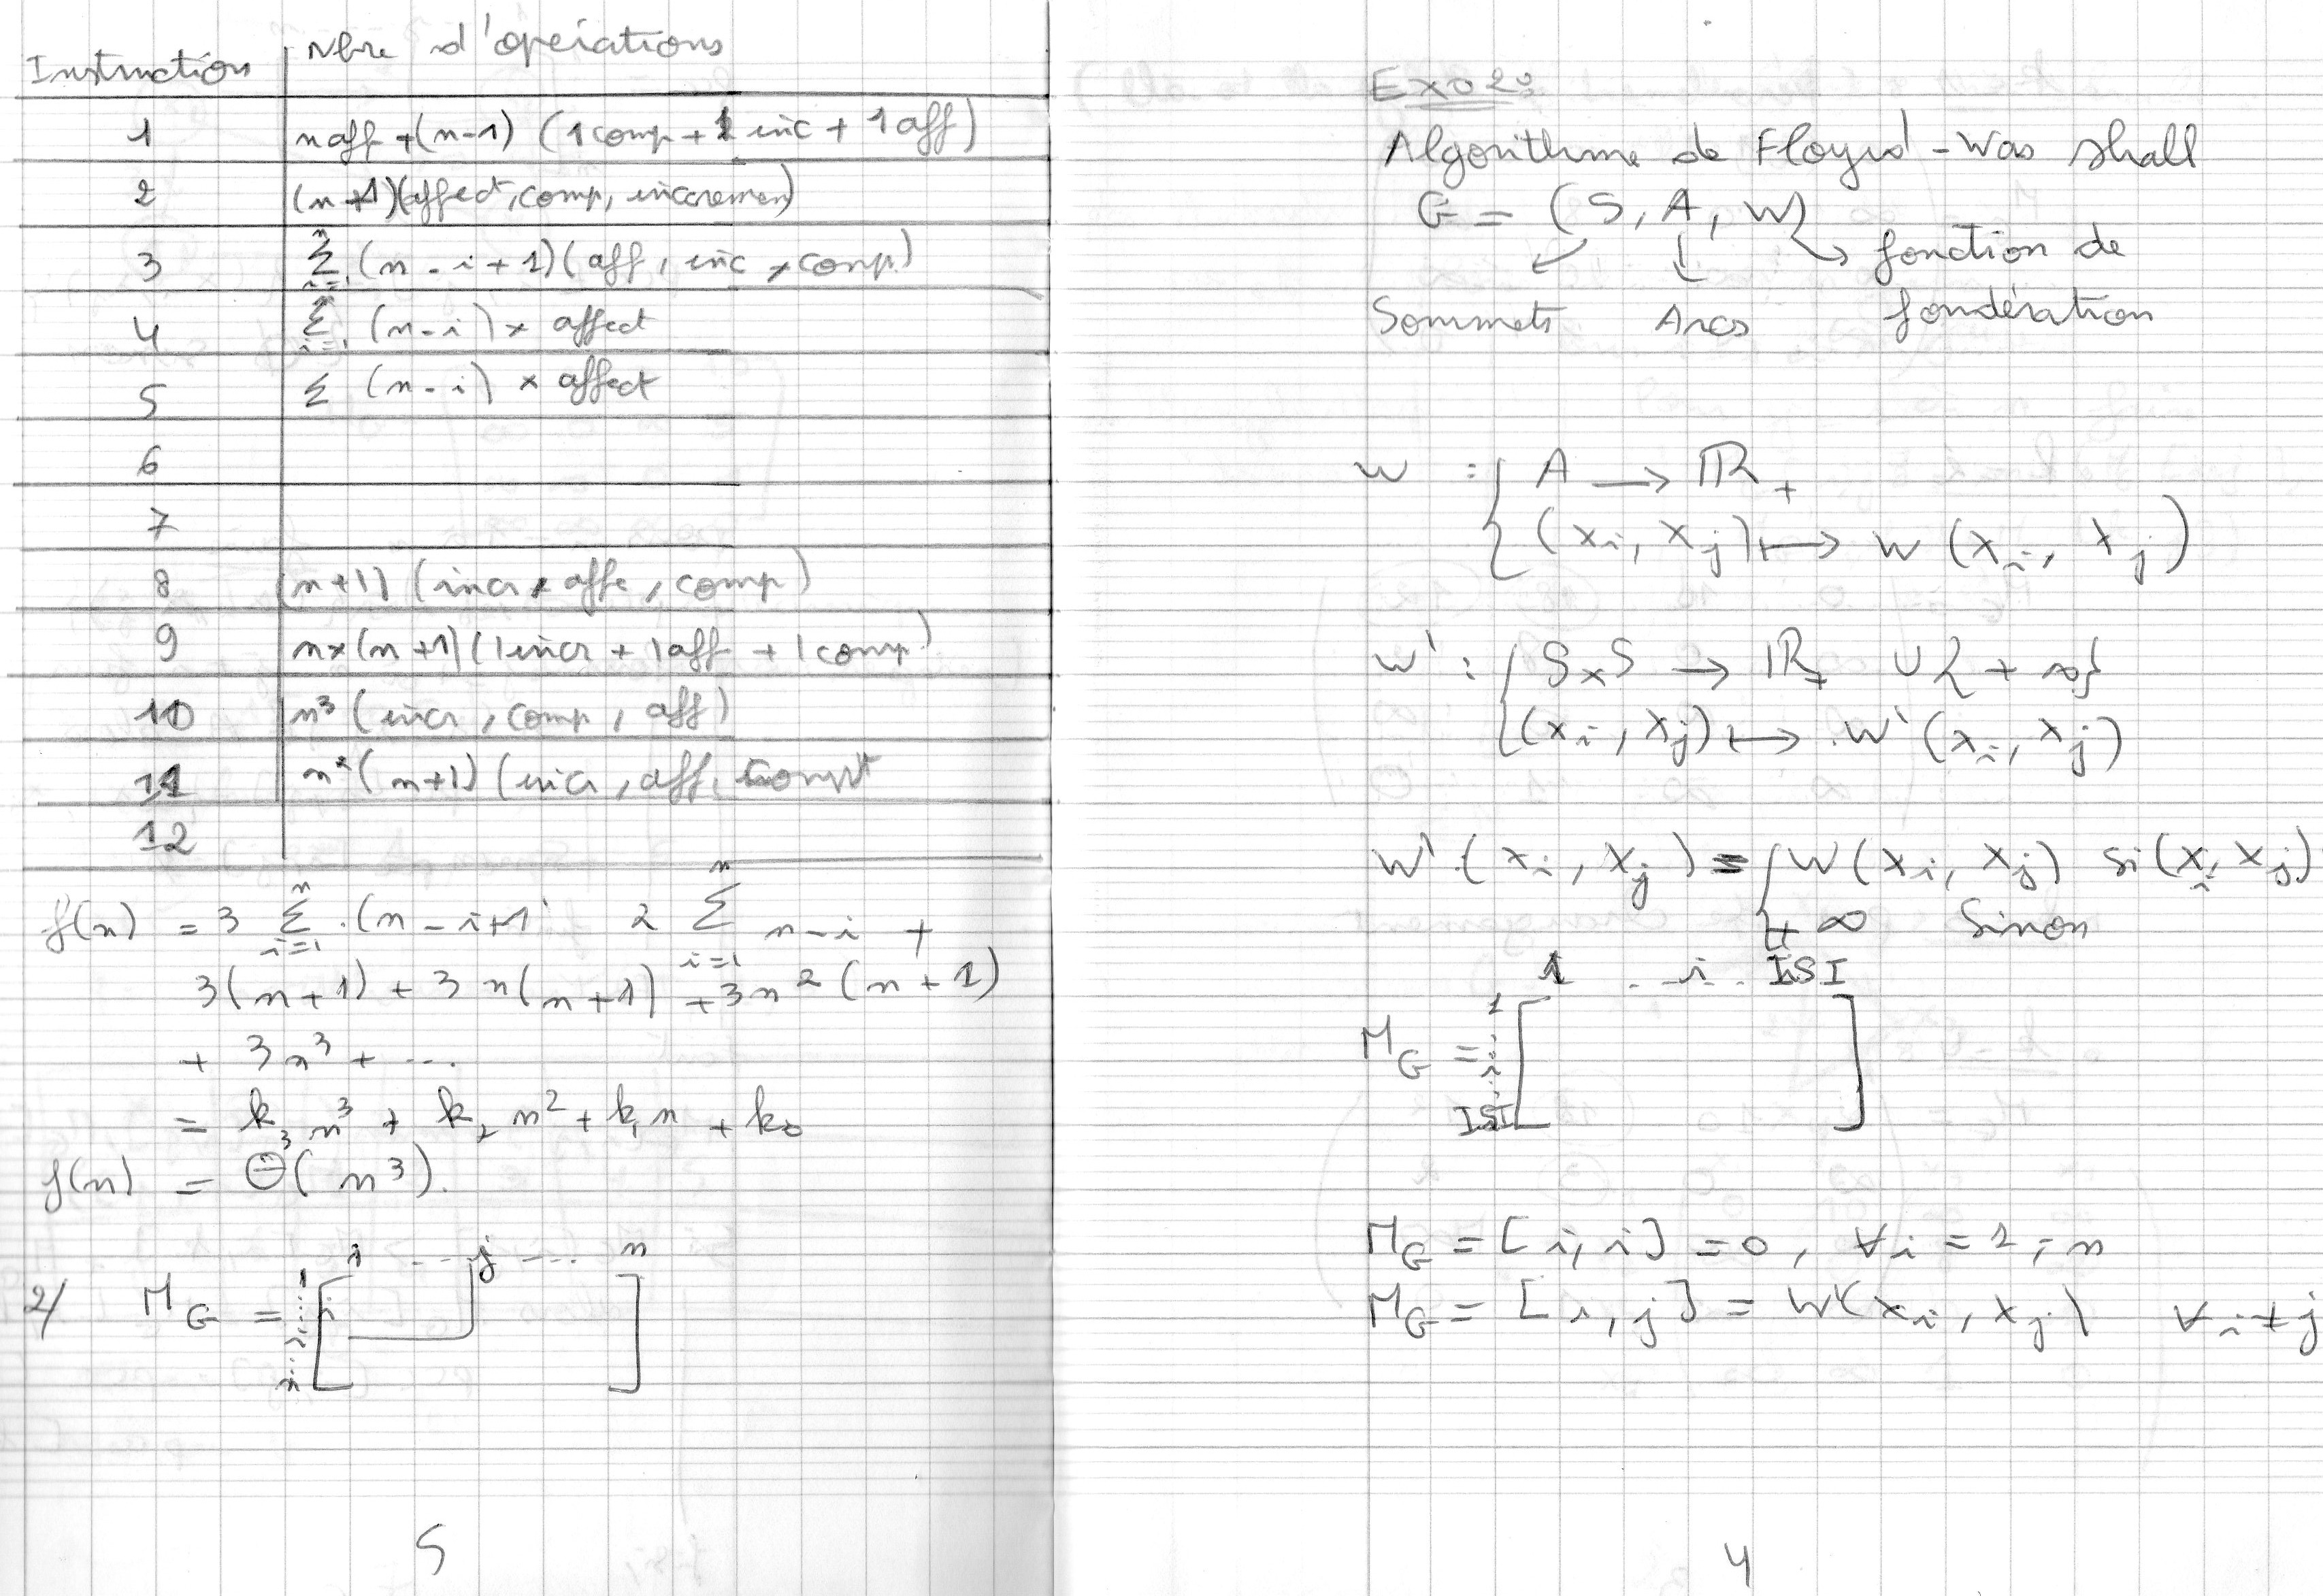 Instruction | Nbre d'opérations
1 | n aff + (n-1) (1 comp + 1 inc + 1 aff)
2 | (n+1)(affect, comp, incremen)
3 | Σ i=1 n (n-i+1)(aff, inc, comp)
4 | Σ i=1 n (n-i) × affect
5 | Σ (n-i) × affect
6
7
8 | (n+1) (incr, affe, comp)
9 | n×(n+1)(1 incr + 1 aff + 1 comp)
10 | n³ (incr, comp, aff)
11 | n²(n+1) (incr, aff, compt
12
f(n) = 3 Σ i=1 n (n-i+1 2 Σ i=1 n n-i +
3(n+1) + 3n(n+1) + 3n²(n+1)
+ 3n³ + ...
= k₃n³ + k₂n² + k₁n + k₀
f(n) = Θ(n³).
1 ... j ... n
2/ M_G = 1 ... i ... n [ ]
5
Exo 2:
Algorithme de Floyd-Wasshall
G = (S, A, W)
fonction de
Sommets Arcs fondération
W : { A → ℝ₊
(xi, xj) ↦ W(xi, xj)
W' : { S×S → ℝ₊ ∪ {+∞}
(xi, xj) ↦ W'(xi, xj)
W'(xi, xj) = { W(xi, xj) si (xi, xj)
+∞ Sinon
1 ... i ... ISI
M_G = 1 ... i ... ISI [ ]
M_G = [i,i] = 0, ∀i = 1, n
M_G = [i,j] = W'(xi, xj) ∀i≠j
4